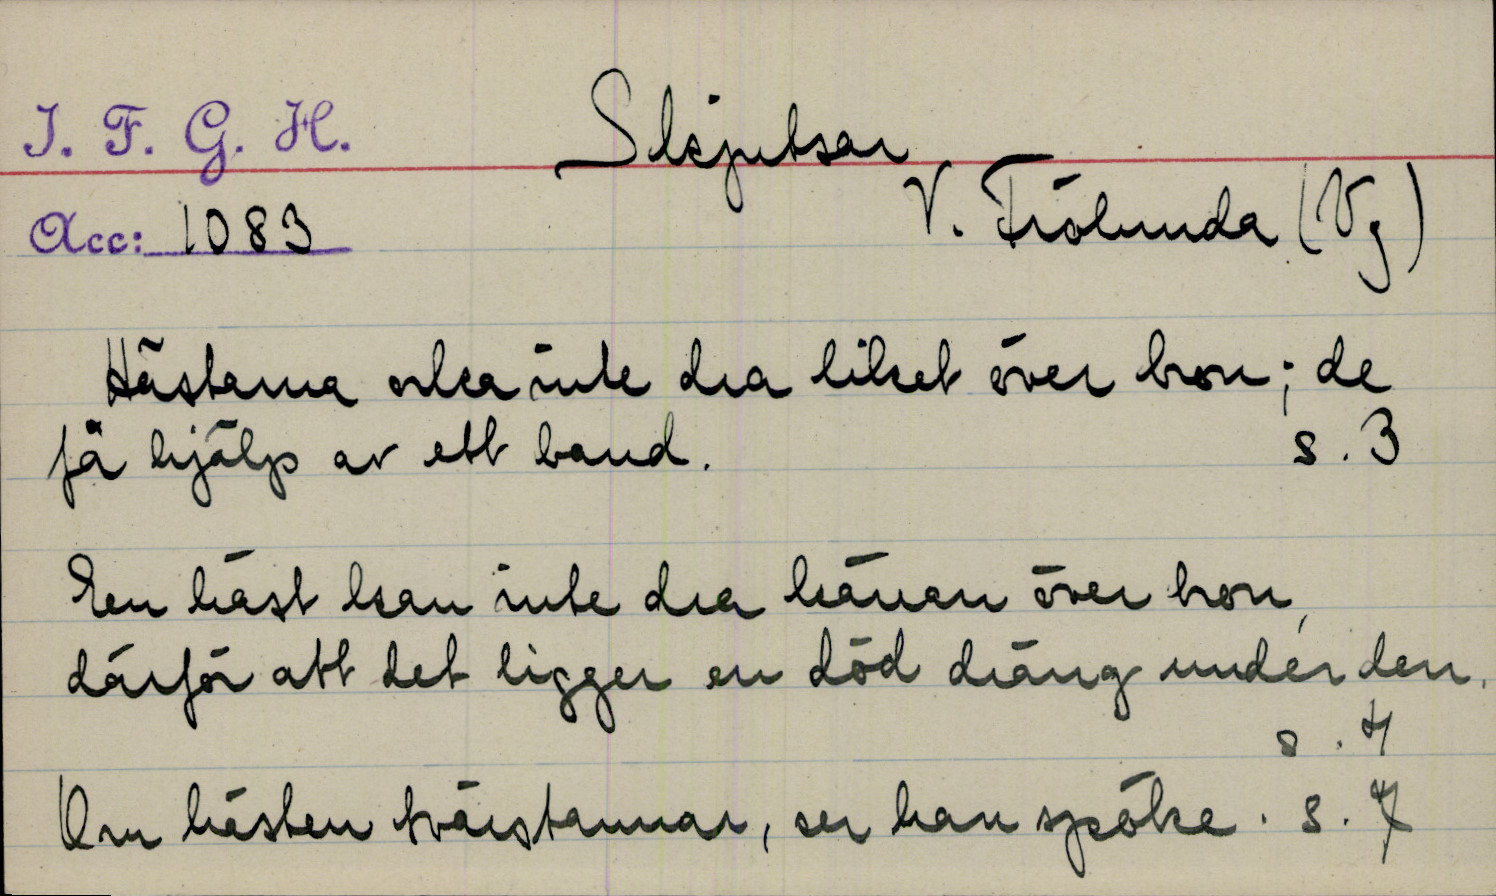 I. F. G. H.
Skjutsar
Acc: 1083
V. Frölunda (Vg)
Hästarna orka inte dra liket över bron; de
få hjälp av ett band.
s. 3
En häst kan inte dra kärran över bron,
därför att det ligger en död dräng under den.
s. 4
Om hästen tvärstannar, ser han spöke. s. 7